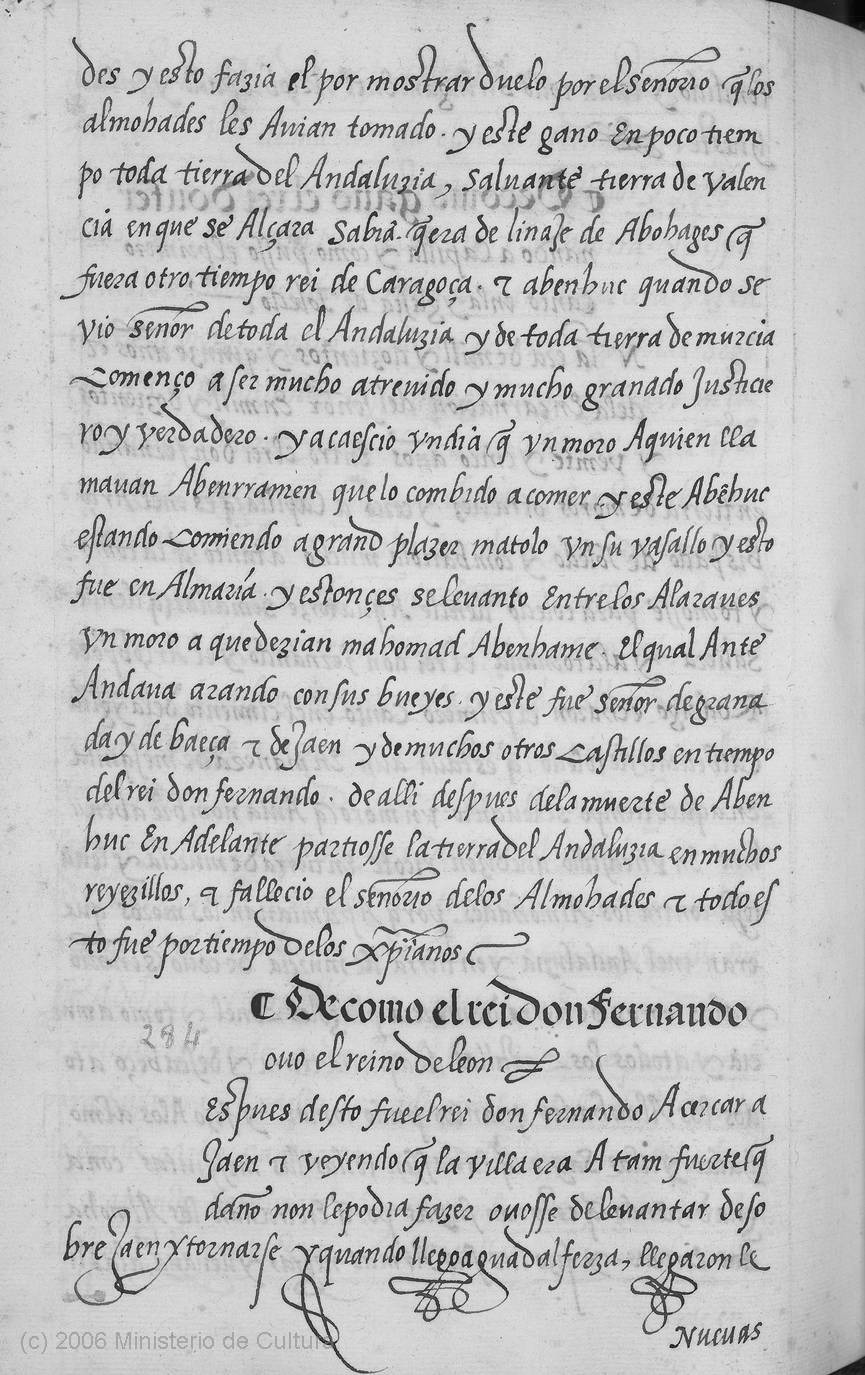 des y esto fazia el por mostrar duelo por el señorio q̃ los
almohades les Auian tomado. y este gano En poco tiem
po toda tierra del Andaluzia, saluante tierra de valen
cia en que se Alçara Sabiã. q̃ era de linaje de Abohages q̃
fuera otro tiempo rei de Caragoça. τ abenhuc quando se
vio señor de toda el Andaluzia y de toda tierra de murcia
Començo a ser mucho atreuido y mucho granado Justicie
ro y verdadero. y acaescio vn dia q̃ vn moro A quien lla
mauan Abenrramen que lo combido a comer y este Abẽhuc
estando Comiendo a grand plazer matolo vn su vasallo y esto
fue en Almaria. y estonçes se leuanto Entre los Alaraues
vn moro a que dezian mahomad Abenhame. El qual Ante
Andaua arando con sus bueyes. y este fue señor de grana
da y de baeça τ de Jaen y de muchos otros Castillos en tiempo
del rei don fernando. de alli despues de la muerte de Aben
huc En Adelante partiosse la tierra del Andaluzia en muchos
reyezillos, τ fallecio el señorio de los Almohades τ todo es
to fue por tiempo de los xp̃ianos
¶ De como el rei don Fernando
284
ouo el reino de leon
Espues desto fue el rei don fernando A cercar a
Jaen τ veyendo q̃ la villa era A tam fuerte q̃
daño non le podia fazer ouosse de leuantar de so
bre Jaen y tornarse y quando llego a guadalferza, llegaron le
Nueuas
(c) 2006 Ministerio de Cultura